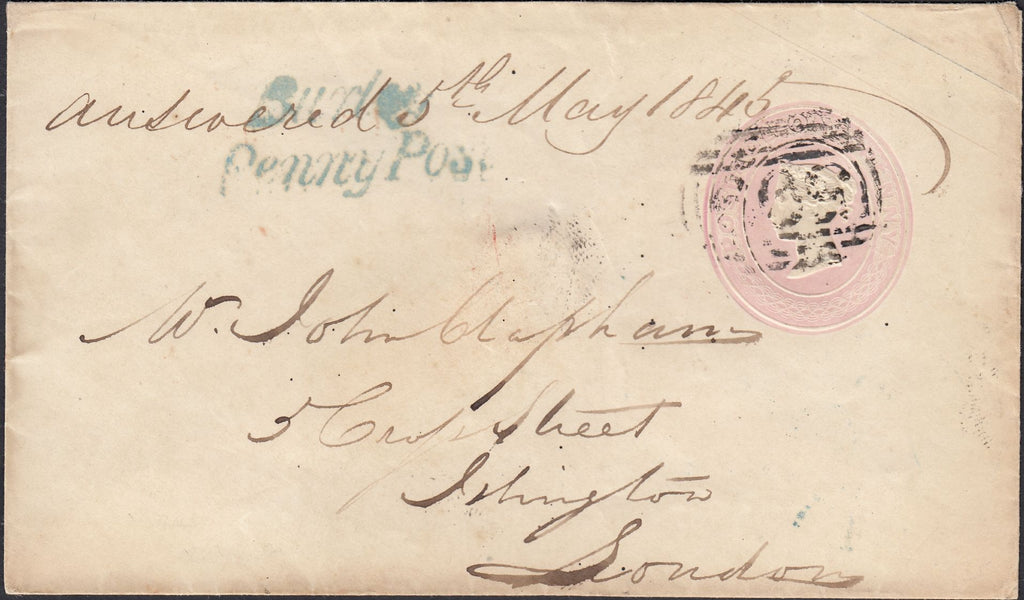 answered 5th May 1845
Penny Post
Mr. John Clapham
5 Cross Street
Islington
London